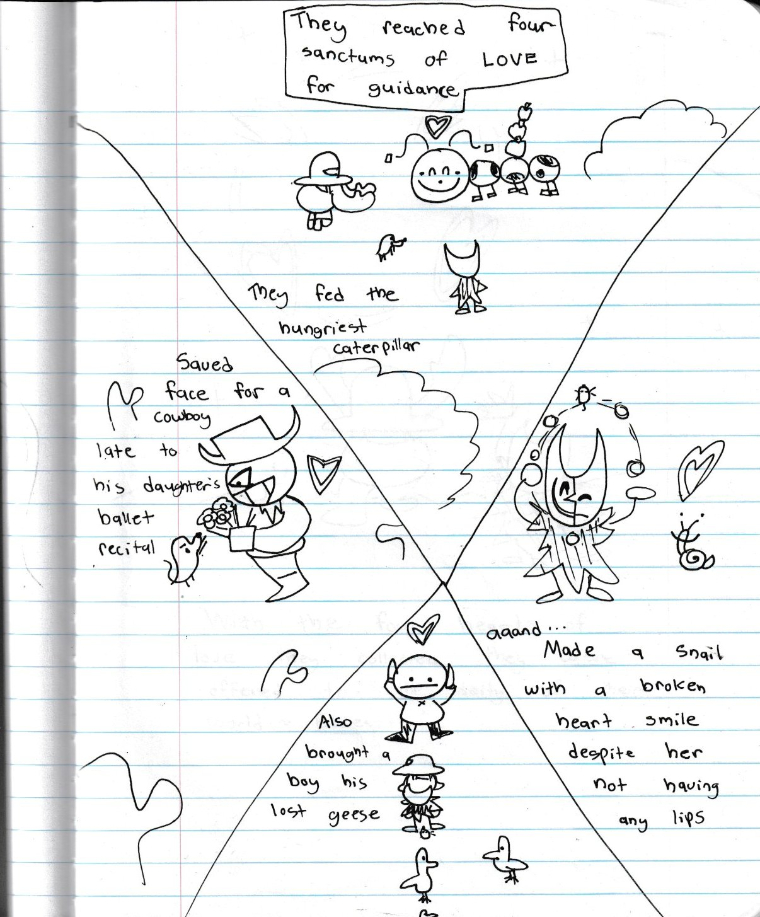 They reached four
sanctums of LOVE
for guidance
They fed the
hungriest
caterpillar
Saved
face for a
cowboy
late to
his daughter's
ballet
recital
Also
brought a
boy his
lost geese
aaand...
Made a snail
with a broken
heart smile
despite her
not having
any lips